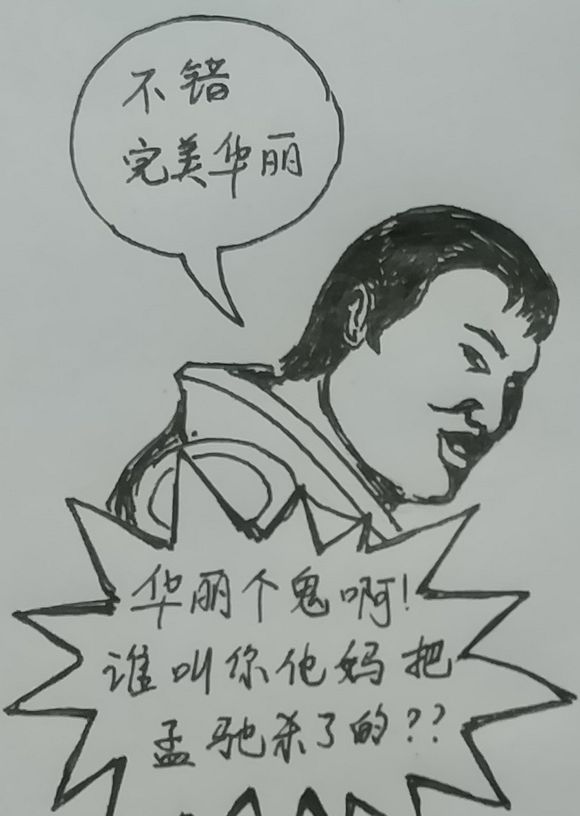 不错
完美华丽
华丽个鬼啊!
谁叫你他妈把
孟驰杀了的??